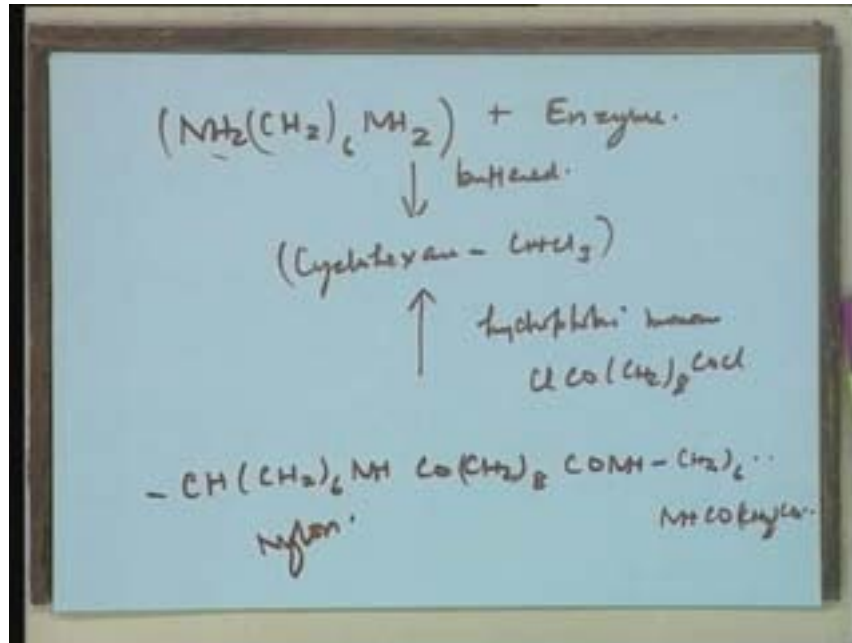 (NH2(CH2)6 NH2) + Enzyme.
↓ buffered.
(Cyclohexan - CHCl3)
↑ hydrophobic
Cl CO(CH2)8 COCl
- CH(CH2)6 NH CO(CH2)8 CONH - CH2)6 ..
Nylon.